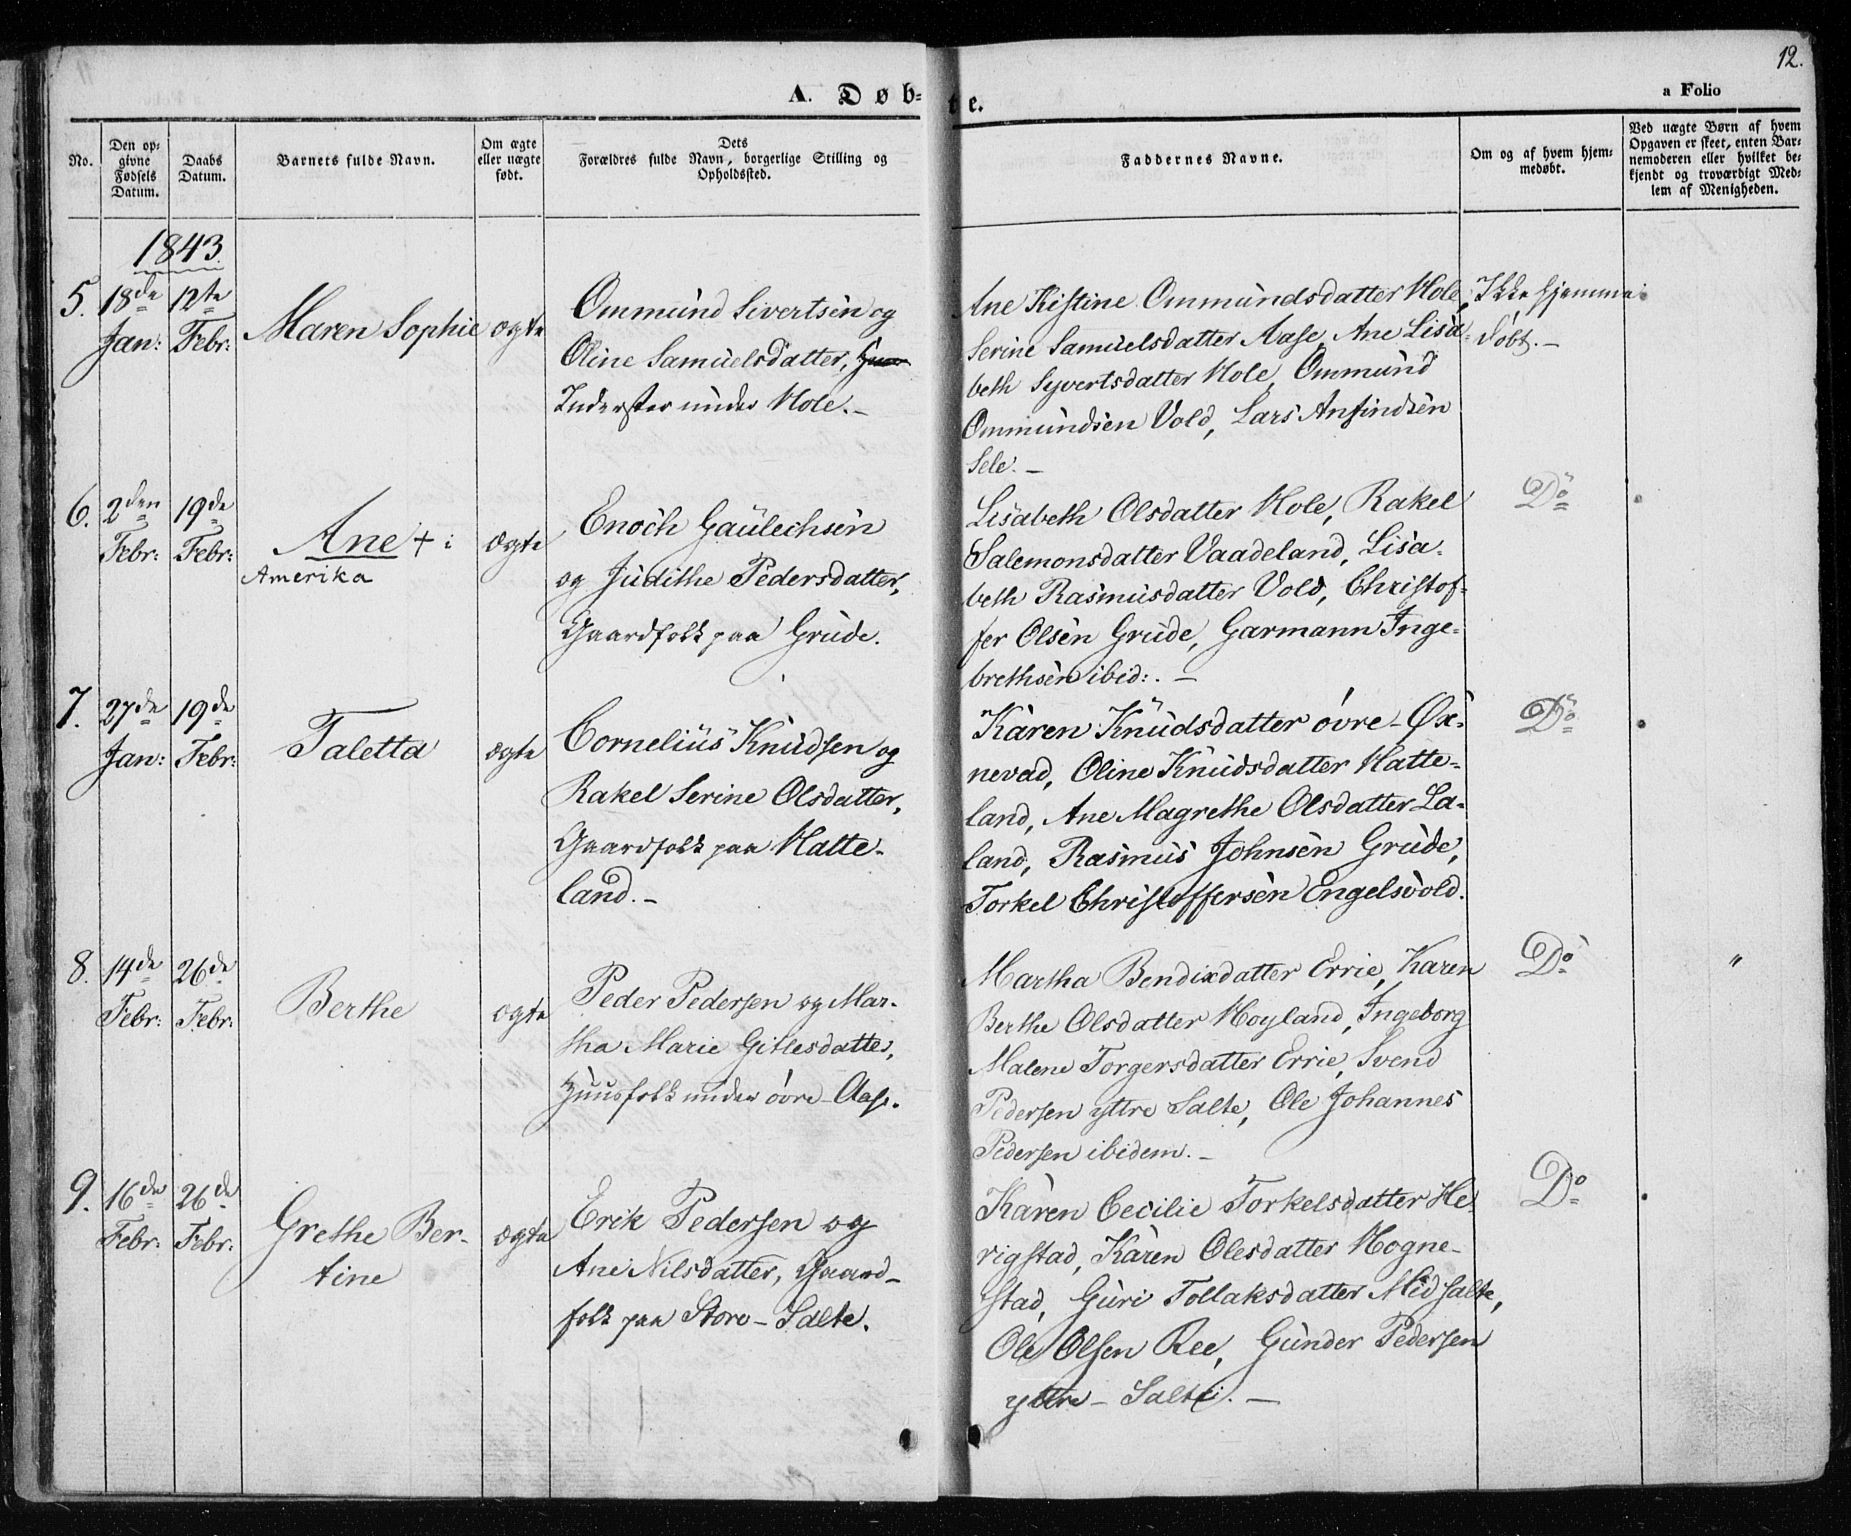 12.
A. Døbte.
a Folio
No.
Den opgivne Fødsels Datum.
Daabs Datum.
Barnets fulde Navn.
Om ægte eller uægte født.
Dets Forældres fulde Navn, borgerlige Stilling og Opholdssted.
Faddernes Navne.
Om og af hvem hjemmedøbt.
Ved uægte Børn af hvem Opgaven er skeet, enten Barnemoderen eller hvilket bekjendt og troværdigt Medlem af Menigheden.
1843.
5. 18de Jan: 12te Febr:
Maren Sophie
ægte
Ommund Sivertsen og
Oline Samuelsdatter,
Inderster under Hole.-
Ane Kistine Ommundsdatter Hole,
Serine Samuelsdatter Aase, Ane Lisa-
beth Syvertsdatter Hole, Ommund
Ommundsen Vold, Lars Anfindsen
Sele.-
Ikke hjemme
døbt.-
6. 2den Febr: 19de Febr:
Ane +
Amerika
ægte
Enoch Gaulechsen
og Judithe Pedersdatter,
Gaardfolk paa Grude.
Lisabeth Olsdatter Hole, Rakel
Salemonsdatter Vaadeland, Lisa-
beth Rasmusdatter Vold, Christof-
fer Olsen Grude, Garmann Inge-
brethsen ibid:.-
Do
7. 27de Jan: 19de Febr:
Taletta
ægte
Cornelius Knudsen og
Rakel Serine Olsdatter,
Gaardfolk paa Hatte-
land.-
Karen Knudsdatter øvre-Øx-
nevad, Oline Knudsdatter Hatte-
land, Ane Magrethe Olsdatter La-
land, Rasmus Johnsen Grude,
Torkel Christoffersen Engelsvold.
Do
8. 14de Febr: 26de Febr:
Berthe
ægte
Peder Pedersen og Mar-
tha Marie Gitlesdatter,
Huusfolk under øvre-Aase.
Martha Bendixdatter Errie, Karen
Berthe Olsdatter Hoyland, Ingeborg
Malene Torgersdatter Errie, Svend
Pedersen yttre Salte, Ole Johannes
Pedersen ibidem.-
Do
"
9. 16de Febr: 26de Febr:
Grethe Ber-
tine
ægte
Erik Pedersen og
Ane Nilsdatter, Gaard-
folk paa Store-Salte.
Karen Cecilie Torkelsdatter He-
rigstad, Karen Olesdatter Hogne-
stad, Guri Tollaksdatter Midsalte,
Ole Olsen Ree, Gunder Pedersen
yttre-Salte.-
Do